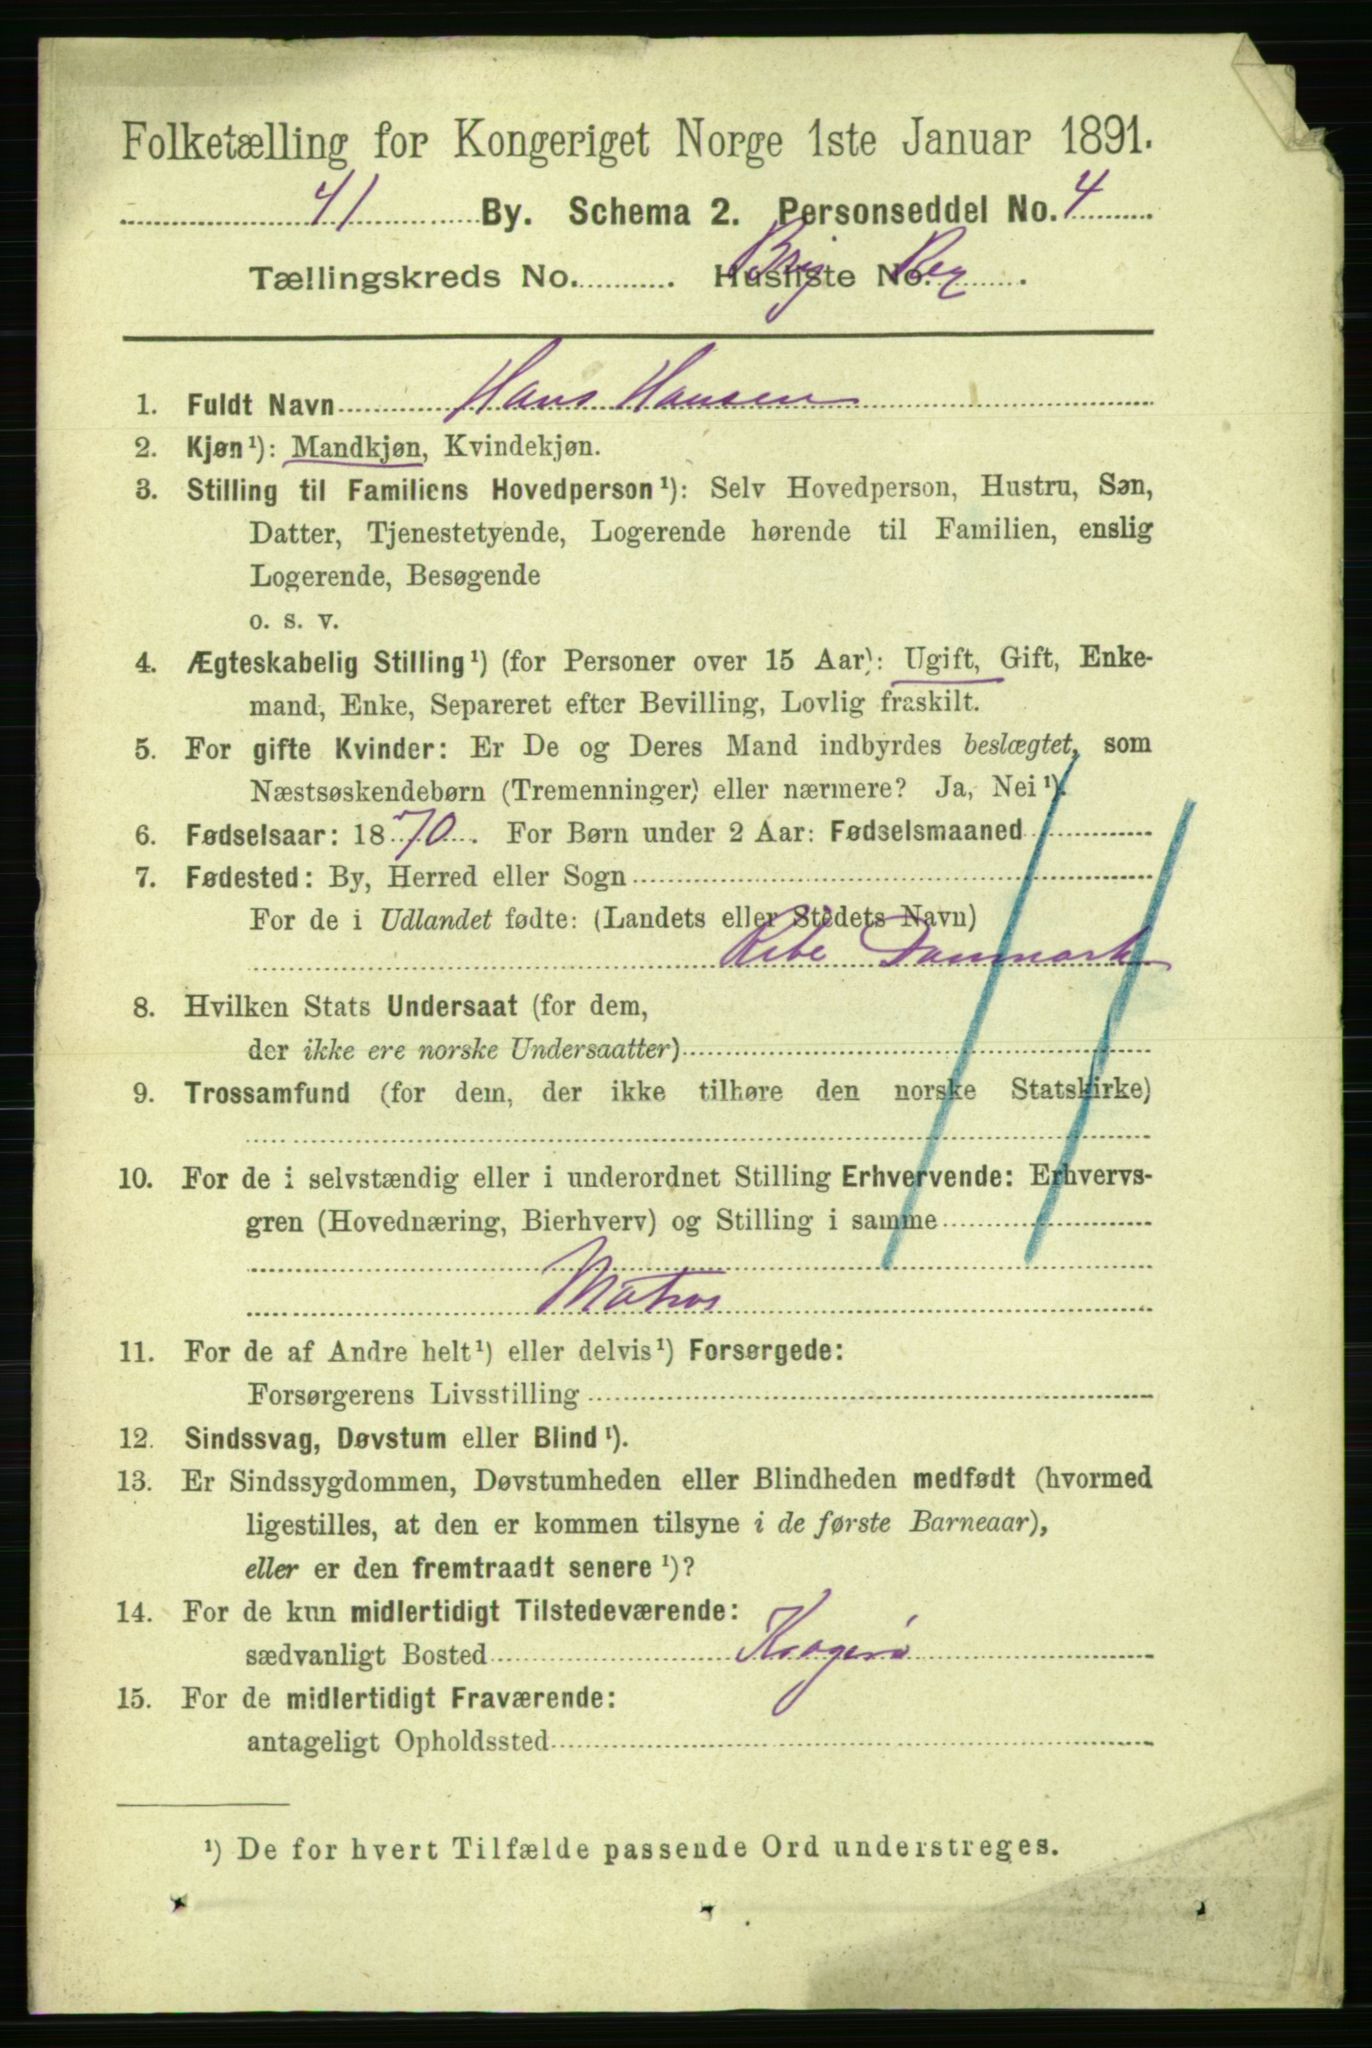 Folketælling for Kongeriget Norge 1ste Januar 1891.
41 By. Schema 2. Personseddel No. 4
Tællingskreds No. . Husliste No. .
Brig Rex
1. Fuldt Navn Hans Hansen
2. Kjøn¹): Mandkjøn, Kvindekjøn.
3. Stilling til Familiens Hovedperson¹): Selv Hovedperson, Hustru, Søn,
Datter, Tjenestetyende, Logerende hørende til Familien, enslig
Logerende, Besøgende
o. s. v.
4. Ægteskabelig Stilling¹) (for Personer over 15 Aar): Ugift, Gift, Enke-
mand, Enke, Separeret efter Bevilling, Lovlig fraskilt.
5. For gifte Kvinder: Er De og Deres Mand indbyrdes beslægtet, som
Næstsøskendebørn (Tremenninger) eller nærmere? Ja, Nei¹).
6. Fødselsaar: 1870. For Børn under 2 Aar: Fødselsmaaned
7. Fødested: By, Herred eller Sogn
For de i Udlandet fødte: (Landets eller Stedets Navn)
Ribe Danmark
8. Hvilken Stats Undersaat (for dem,
der ikke ere norske Undersaatter)
9. Trossamfund (for dem, der ikke tilhøre den norske Statskirke)
10. For de i selvstændig eller i underordnet Stilling Erhvervende: Erhvervs-
gren (Hovednæring, Bierhverv) og Stilling i samme
Matros
11. For de af Andre helt¹) eller delvis¹) Forsørgede:
Forsørgerens Livsstilling
12. Sindssvag, Døvstum eller Blind¹).
13. Er Sindssygdommen, Døvstumheden eller Blindheden medfødt (hvormed
ligestilles, at den er kommen tilsyne i de første Barneaar),
eller er den fremtraadt senere¹)?
14. For de kun midlertidigt Tilstedeværende:
sædvanligt Bosted Kragerø
15. For de midlertidigt Fraværende:
antageligt Opholdssted
¹) De for hvert Tilfælde passende Ord understreges.